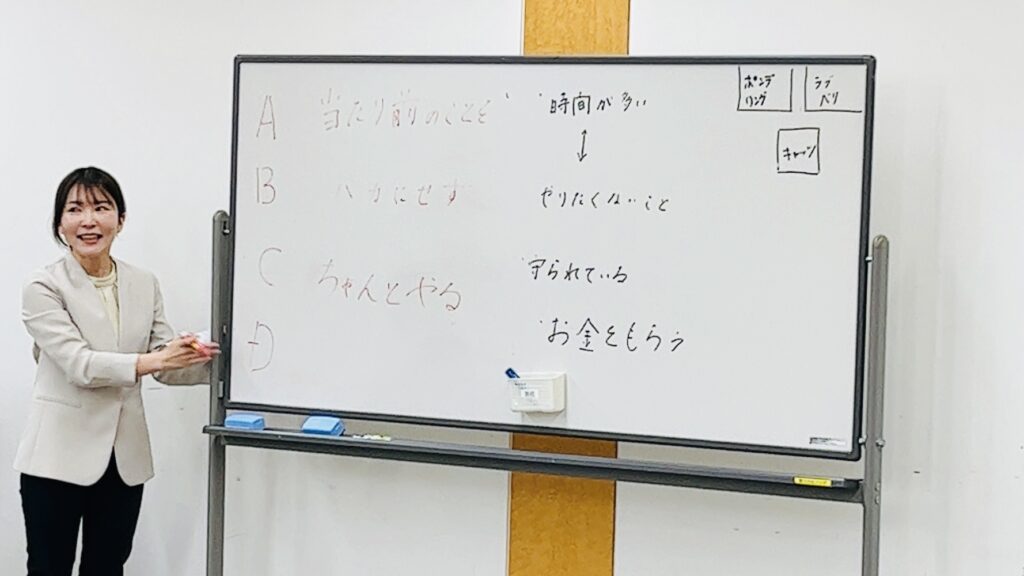 A 当たり前のことを
B バカにせず
C ちゃんとやる
D
・時間が多い
↕
やりたくないこと
・守られている
・お金をもらう
ポンデ
リング
ラブ
ベリ